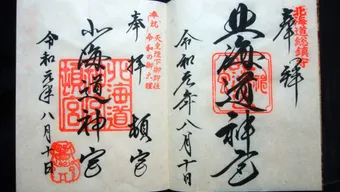 北海道総鎮守
奉拝
北海道神宮
令和元年八月十日
奉祝 天皇陛下御即位
令和の御大礼
奉拝
頓宮
北海道神宮
北海道
頓宮
令和元年八月十日